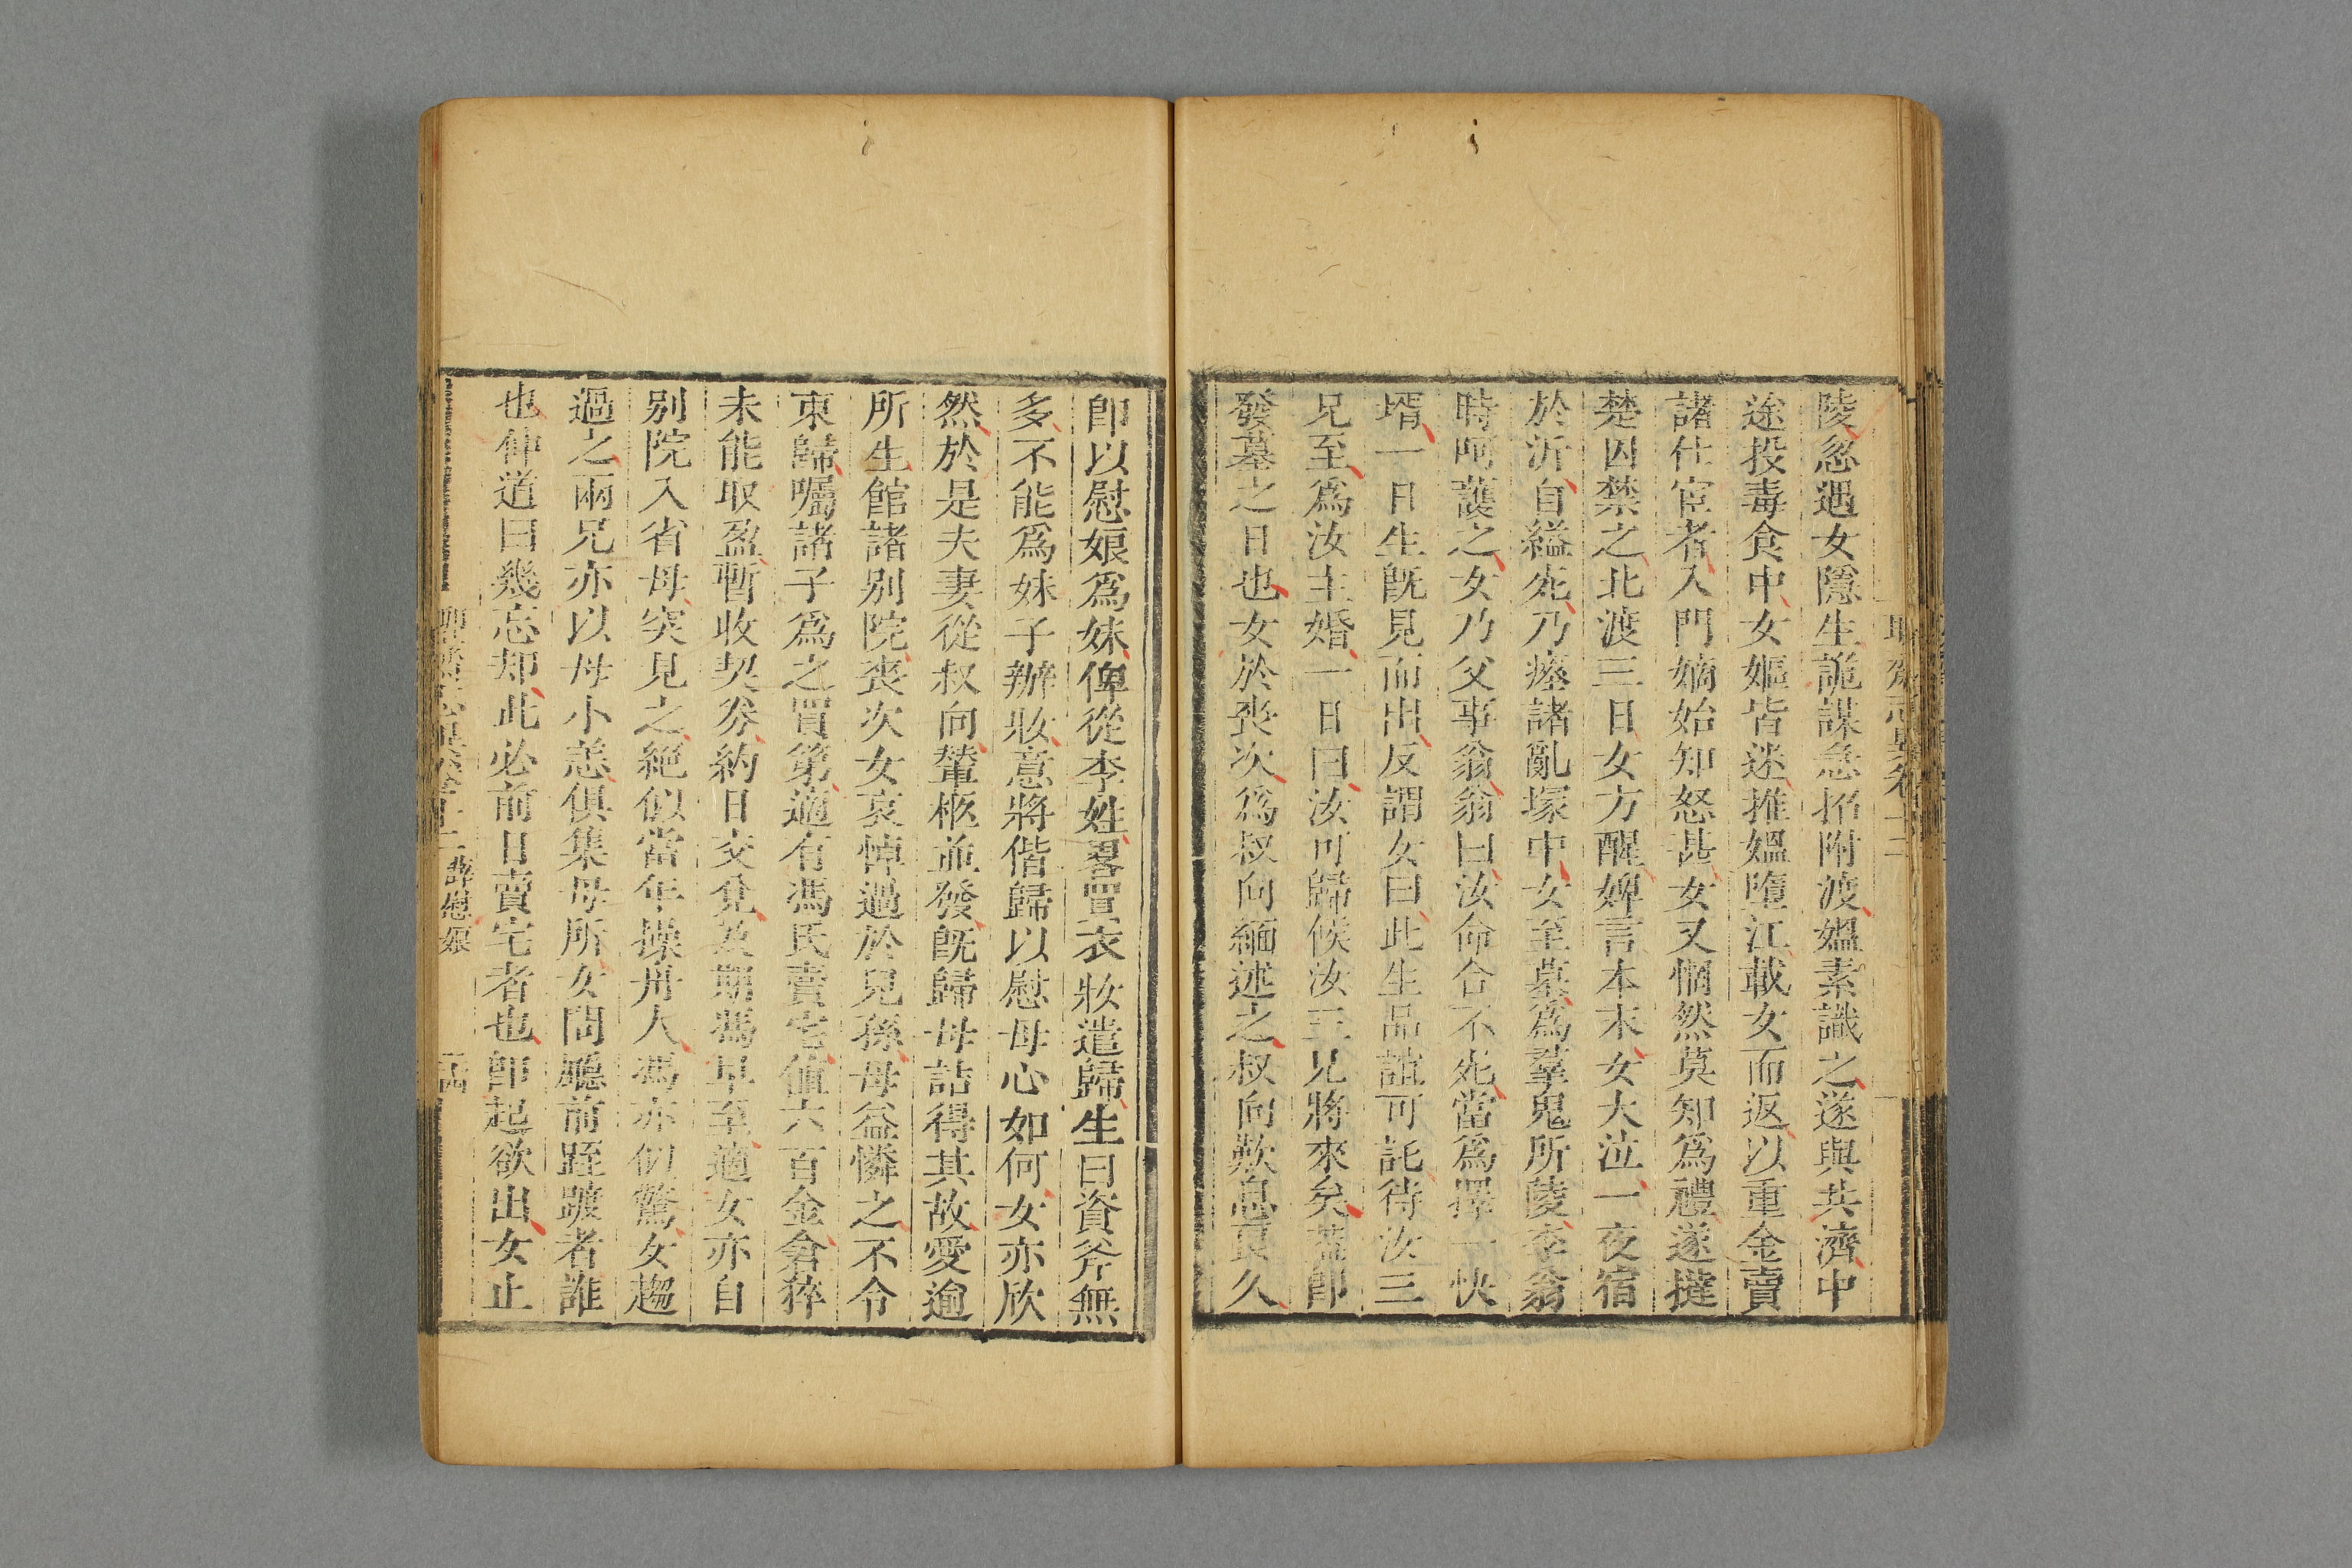 陵忽遇女隱生詭謀急招附渡媼素識之遂與共濟中
途投毒食中女嫗皆迷推媼墮江載女而返以重金賣
諸仕宦者入門嫡始知怒甚女又惘然莫知爲禮遂撻
楚囚禁之北渡三日女方醒婢言本末女大泣一夜宿
於沂自縊死乃瘞諸亂塚中女至墓爲羣鬼所陵李翁
時呵護之女乃父事翁翁曰汝命合不死當爲擇一快
壻一日生旣見而出反謂女曰此生品誼可託待汝三
兄至爲汝主婚一日曰汝可歸候汝三兄將來矣蓋卽
發墓之日也女於喪次爲叔向緬述之叔向歎息良久
卽以慰娘爲妹俾從李姓畧買衣妝遣歸生曰資斧無
多不能爲妹子辦妝意將偕歸以慰母心如何女亦欣
然於是夫妻從叔向輦柩並發旣歸母詰得其故愛逾
所生館諸别院喪次女哀悼過於兒孫母益憐之不令
東歸囑諸子爲之買第適有馮氏賣宅値六百金倉猝
未能取盈暫收契券約日交兌及期馮早至適女亦自
别院入省母突見之絶似當年操舟人馮亦似驚女趨
過之兩兄亦以母小恙俱集母所女問廳前踁踱者誰
也仲道曰幾忘却此必前日賣宅者也卽起欲出女止
薛慰娘